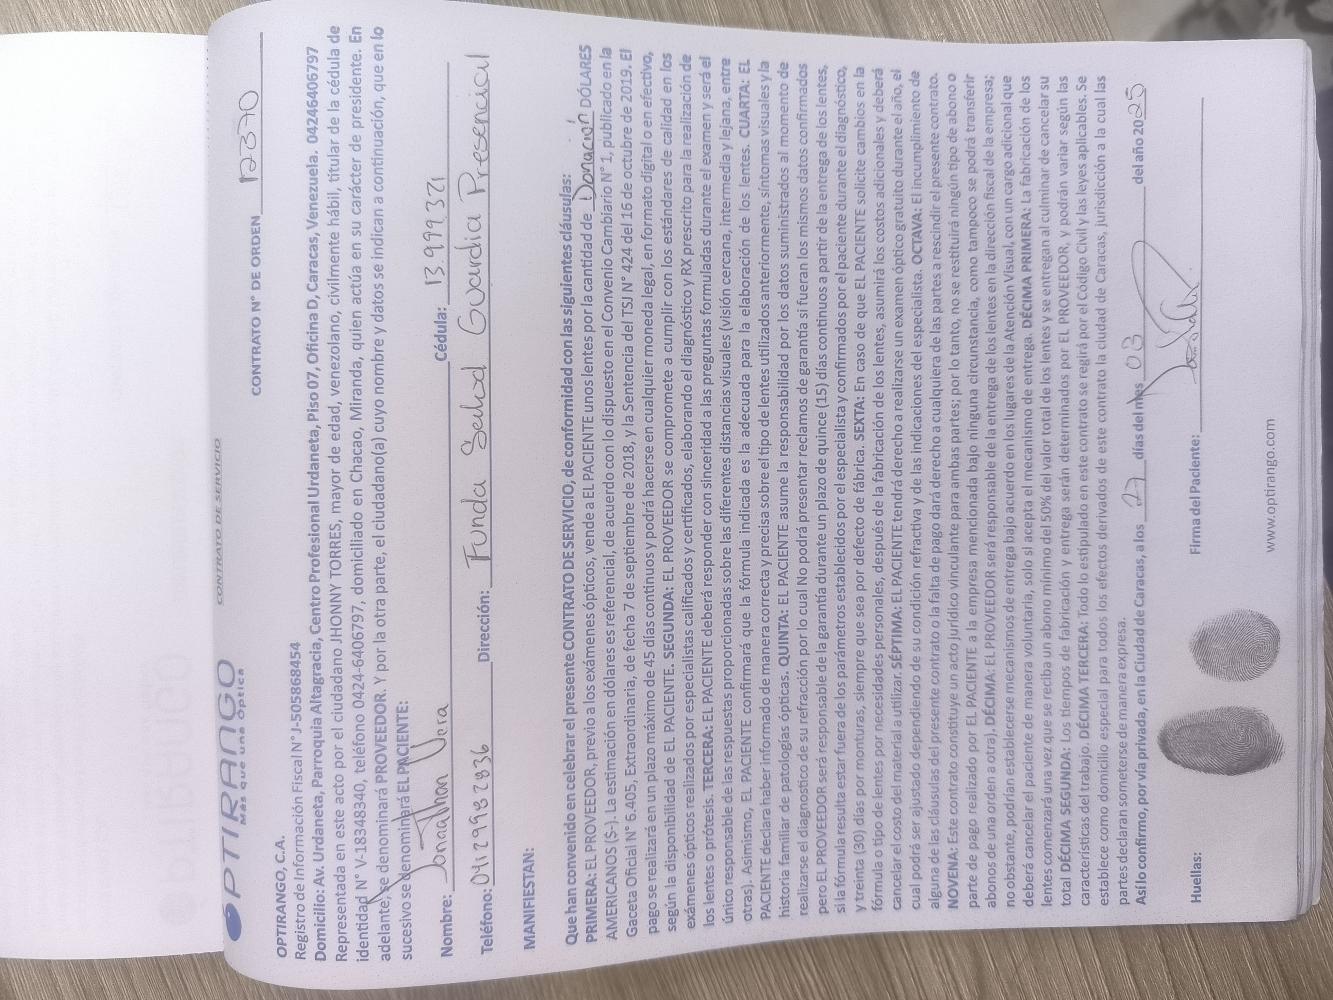 OPTIRANGO
Más que una Óptica
CONTRATO DE SERVICIO
CONTRATO N° DE ORDEN 12370
OPTIRANGO, C.A.
Registro de Información Fiscal N° J-505868454
Domicilio: Av. Urdaneta, Parroquia Altagracia, Centro Profesional Urdaneta, Piso 07, Oficina D, Caracas, Venezuela. 04246406797
Representada en este acto por el ciudadano JHONNY TORRES, mayor de edad, venezolano, civilmente hábil, titular de la cédula de
identidad N° V-18348340, teléfono 0424-6406797, domiciliado en Chacao, Miranda, quien actúa en su carácter de presidente. En
adelante, se denominará PROVEEDOR. Y por la otra parte, el ciudadano(a) cuyo nombre y datos se indican a continuación, que en lo
sucesivo se denominará EL PACIENTE:
Nombre: Jonatthan Vera Cédula: 13.999321
Teléfono: 04129982836 Dirección: Funda Salud Guardia Presencial
MANIFIESTAN:
Que han convenido en celebrar el presente CONTRATO DE SERVICIO, de conformidad con las siguientes cláusulas:
PRIMERA: EL PROVEEDOR, previo a los exámenes ópticos, vende a EL PACIENTE unos lentes por la cantidad de Donación DÓLARES
AMERICANOS ($-). La estimación en dólares es referencial, de acuerdo con lo dispuesto en el Convenio Cambiario N° 1, publicado en la
Gaceta Oficial N° 6.405, Extraordinaria, de fecha 7 de septiembre de 2018, y la Sentencia del TSJ N° 424 del 16 de octubre de 2019. El
pago se realizará en un plazo máximo de 45 días continuos y podrá hacerse en cualquier moneda legal, en formato digital o en efectivo,
según la disponibilidad de EL PACIENTE. SEGUNDA: EL PROVEEDOR se compromete a cumplir con los estándares de calidad en los
exámenes ópticos realizados por especialistas calificados y certificados, elaborando el diagnóstico y RX prescrito para la realización de
los lentes o prótesis. TERCERA: EL PACIENTE deberá responder con sinceridad a las preguntas formuladas durante el examen y será el
único responsable de las respuestas proporcionadas sobre las diferentes distancias visuales (visión cercana, intermedia y lejana, entre
otras). Asimismo, EL PACIENTE confirmará que la fórmula indicada es la adecuada para la elaboración de los lentes. CUARTA: EL
PACIENTE declara haber informado de manera correcta y precisa sobre el tipo de lentes utilizados anteriormente, síntomas visuales y la
historia familiar de patologías ópticas. QUINTA: EL PACIENTE asume la responsabilidad por los datos suministrados al momento de
realizarse el diagnostico de su refracción por lo cual No podrá presentar reclamos de garantía si fueran los mismos datos confirmados
pero EL PROVEEDOR será responsable de la garantía durante un plazo de quince (15) días continuos a partir de la entrega de los lentes,
si la fórmula resulta estar fuera de los parámetros establecidos por el especialista y confirmados por el paciente durante el diagnóstico,
y treinta (30) días por monturas, siempre que sea por defecto de fábrica. SEXTA: En caso de que EL PACIENTE solicite cambios en la
fórmula o tipo de lentes por necesidades personales, después de la fabricación de los lentes, asumirá los costos adicionales y deberá
cancelar el costo del material a utilizar. SÉPTIMA: EL PACIENTE tendrá derecho a realizarse un examen óptico gratuito durante el año, el
cual podrá ser ajustado dependiendo de su condición refractiva y de las indicaciones del especialista. OCTAVA: El incumplimiento de
alguna de las cláusulas del presente contrato o la falta de pago dará derecho a cualquiera de las partes a rescindir el presente contrato.
NOVENA: Este contrato constituye un acto jurídico vinculante para ambas partes; por lo tanto, no se restituirá ningún tipo de abono o
parte de pago realizado por EL PACIENTE a la empresa mencionada bajo ninguna circunstancia, como tampoco se podrá transferir
abonos de una orden a otra). DÉCIMA: EL PROVEEDOR será responsable de la entrega de los lentes en la dirección fiscal de la empresa;
no obstante, podrían establecerse mecanismos de entrega bajo acuerdo en los lugares de la Atención Visual, con un cargo adicional que
deberá cancelar el paciente de manera voluntaria, solo si acepta el mecanismo de entrega. DÉCIMA PRIMERA: La fabricación de los
lentes comenzará una vez que se reciba un abono mínimo del 50% del valor total de los lentes y se entregan al culminar de cancelar su
total DÉCIMA SEGUNDA: Los tiempos de fabricación y entrega serán determinados por EL PROVEEDOR, y podrán variar según las
características del trabajo. DÉCIMA TERCERA: Todo lo estipulado en este contrato se regirá por el Código Civil y las leyes aplicables. Se
establece como domicilio especial para todos los efectos derivados de este contrato la ciudad de Caracas, jurisdicción a la cual las
partes declaran someterse de manera expresa.
Así lo confirmo, por vía privada, en la Ciudad de Caracas, a los 27 días del mes 03 del año 2025
Huellas: Firma del Paciente:
www.optirango.com